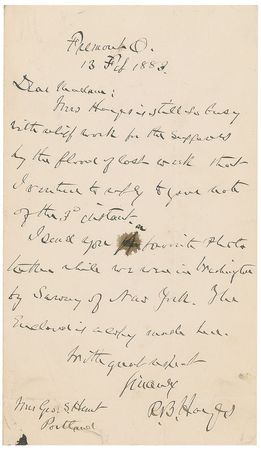 Fremont O.
13 Feb 1883.
Dear Madam:
Mrs Hayes is still so busy
with relief work for the sufferers
by the flood of last week that
I venture to reply to your note
of the 3d instant.
I send you a favorite Photo
taken while we were in Washington
by Sarony of New York. The
Enclosed is a copy made here.
With great respect
Sincerely
R. B. Hayes
Mrs Geo. S. Hunt
Portland